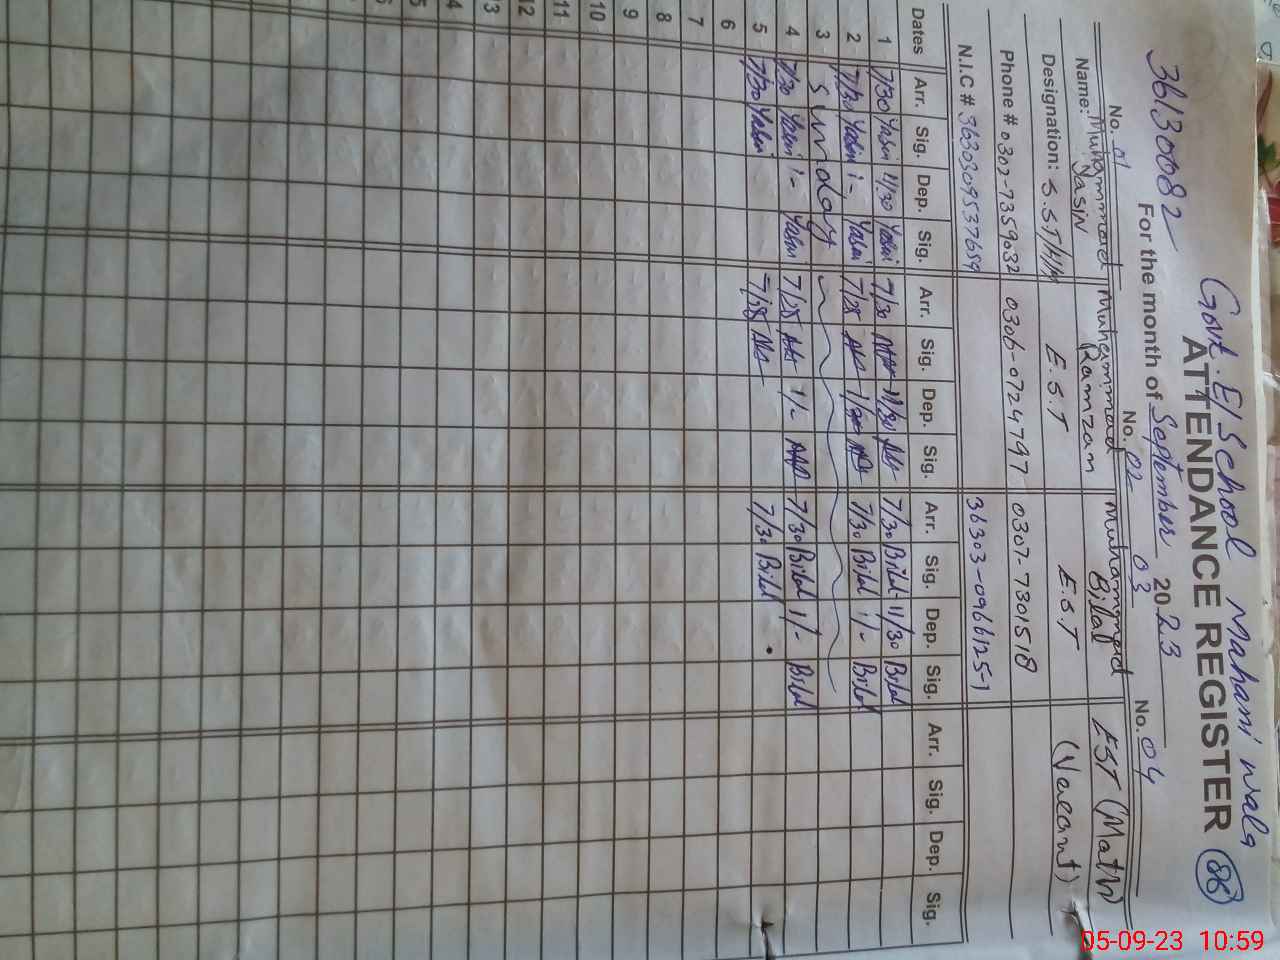 Govt. E/School Mahani wala
36130082
ATTENDANCE REGISTER 86
For the month of September 2023
No. 01 No. 02 No. 03 No. 04
Name: Muhammad Yasin Muhammad Ramzan Muhammad Bilal EST (Math)
Designation: S.S.T/H/M E.S.T E.S.T (Vacant)
Phone # 0302-7359032 0306-0724797 0307-7301518
N.I.C # 3630309537659 36303-0966125-1
Dates Arr. Sig. Dep. Sig. Arr. Sig. Dep. Sig. Arr. Sig. Dep. Sig. Arr. Sig. Dep. Sig.
1 7/30 Yasin 11/30 Yasin 7/30 11/30 7/30 Bilal 11/30 Bilal
2 7/30 Yasin 1/- Yasin 7/28 7/30 Bilal 1/- Bilal
3 Sunday
4 7/30 Yasin 1/- Yasin 7/28 1/- 7/30 Bilal 1/- Bilal
5 7/30 Yasin 7/28 7/30 Bilal
6
7
8
9
10
11
12
13
05-09-23 10:59